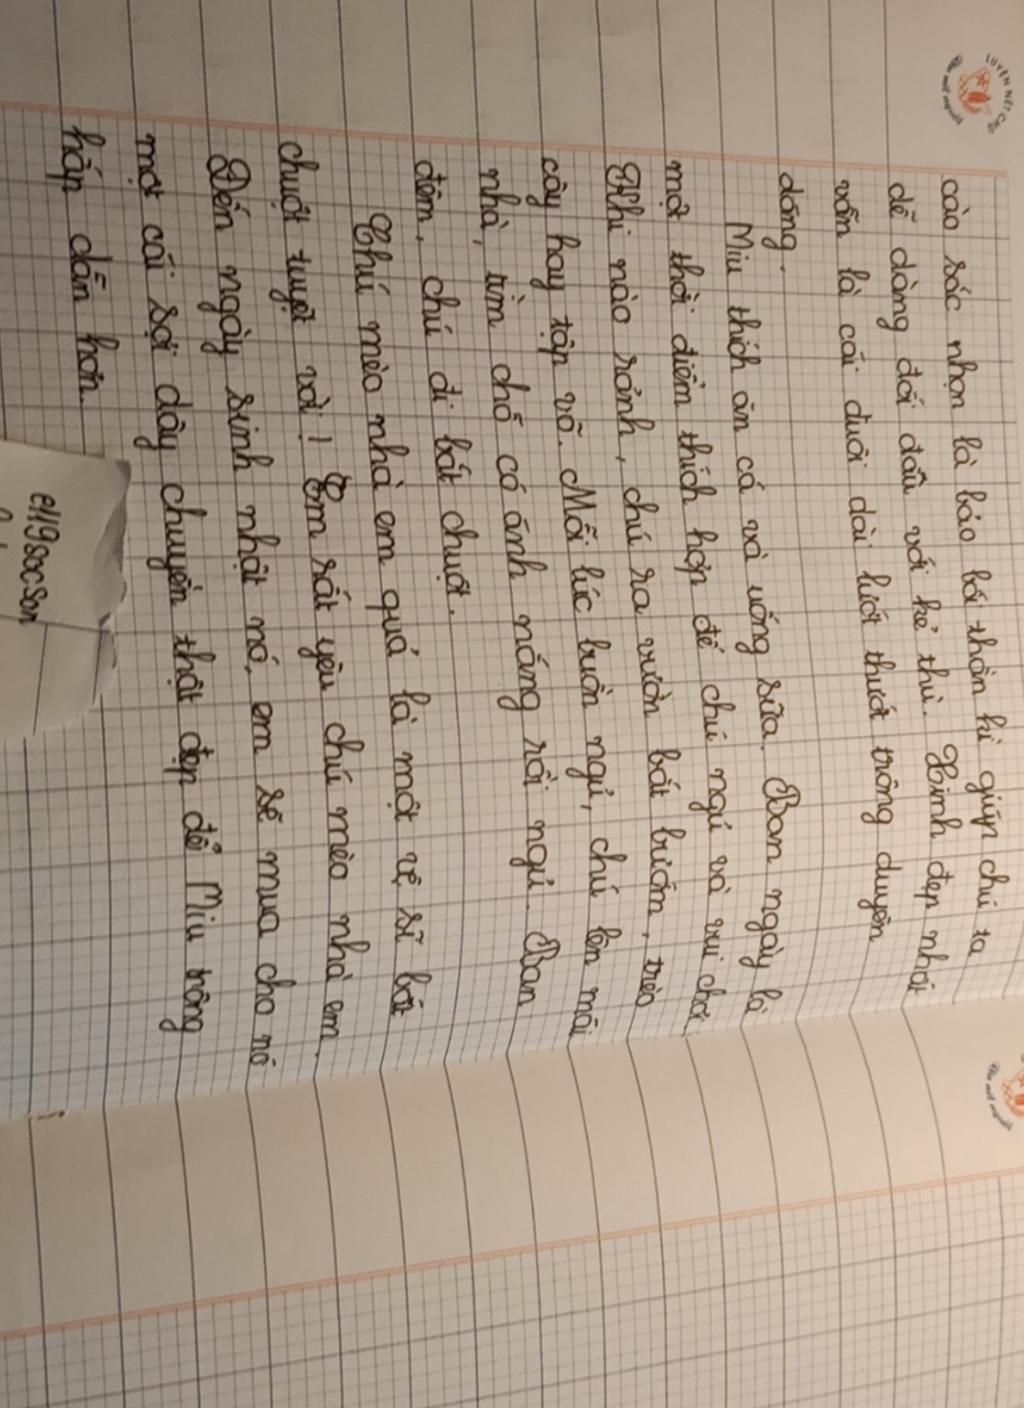 LUYỆN NÉT CHỮ
Rèn nết người
cào sắc nhọn là báo bối thần kì giúp chú ta
dễ dàng đối đầu với kẻ thù. Xinh đẹp nhất
vẫn là cái đuôi dài lướt thướt trông duyên
dáng.
Miu thích ăn cá và uống sữa. Ban ngày là
một thời điểm thích hợp để chú ngủ và vui chơi.
Khi nào rảnh, chú ra vườn bắt bướm, trèo
cây hay tập võ. Mỗi lúc buồn ngủ, chú lên mái
nhà, tìm chỗ có ánh nắng rồi ngủ. Ban
đêm, chú đi bắt chuột.
Chú mèo nhà em quả là một vệ sĩ bắt
chuột tuyệt vời! Em rất yêu chú mèo nhà em.
Đến ngày sinh nhật nó, em sẽ mua cho nó
một cái sợi dây chuyền thật đẹp để Miu trông
hấp dẫn hơn.
e119socson